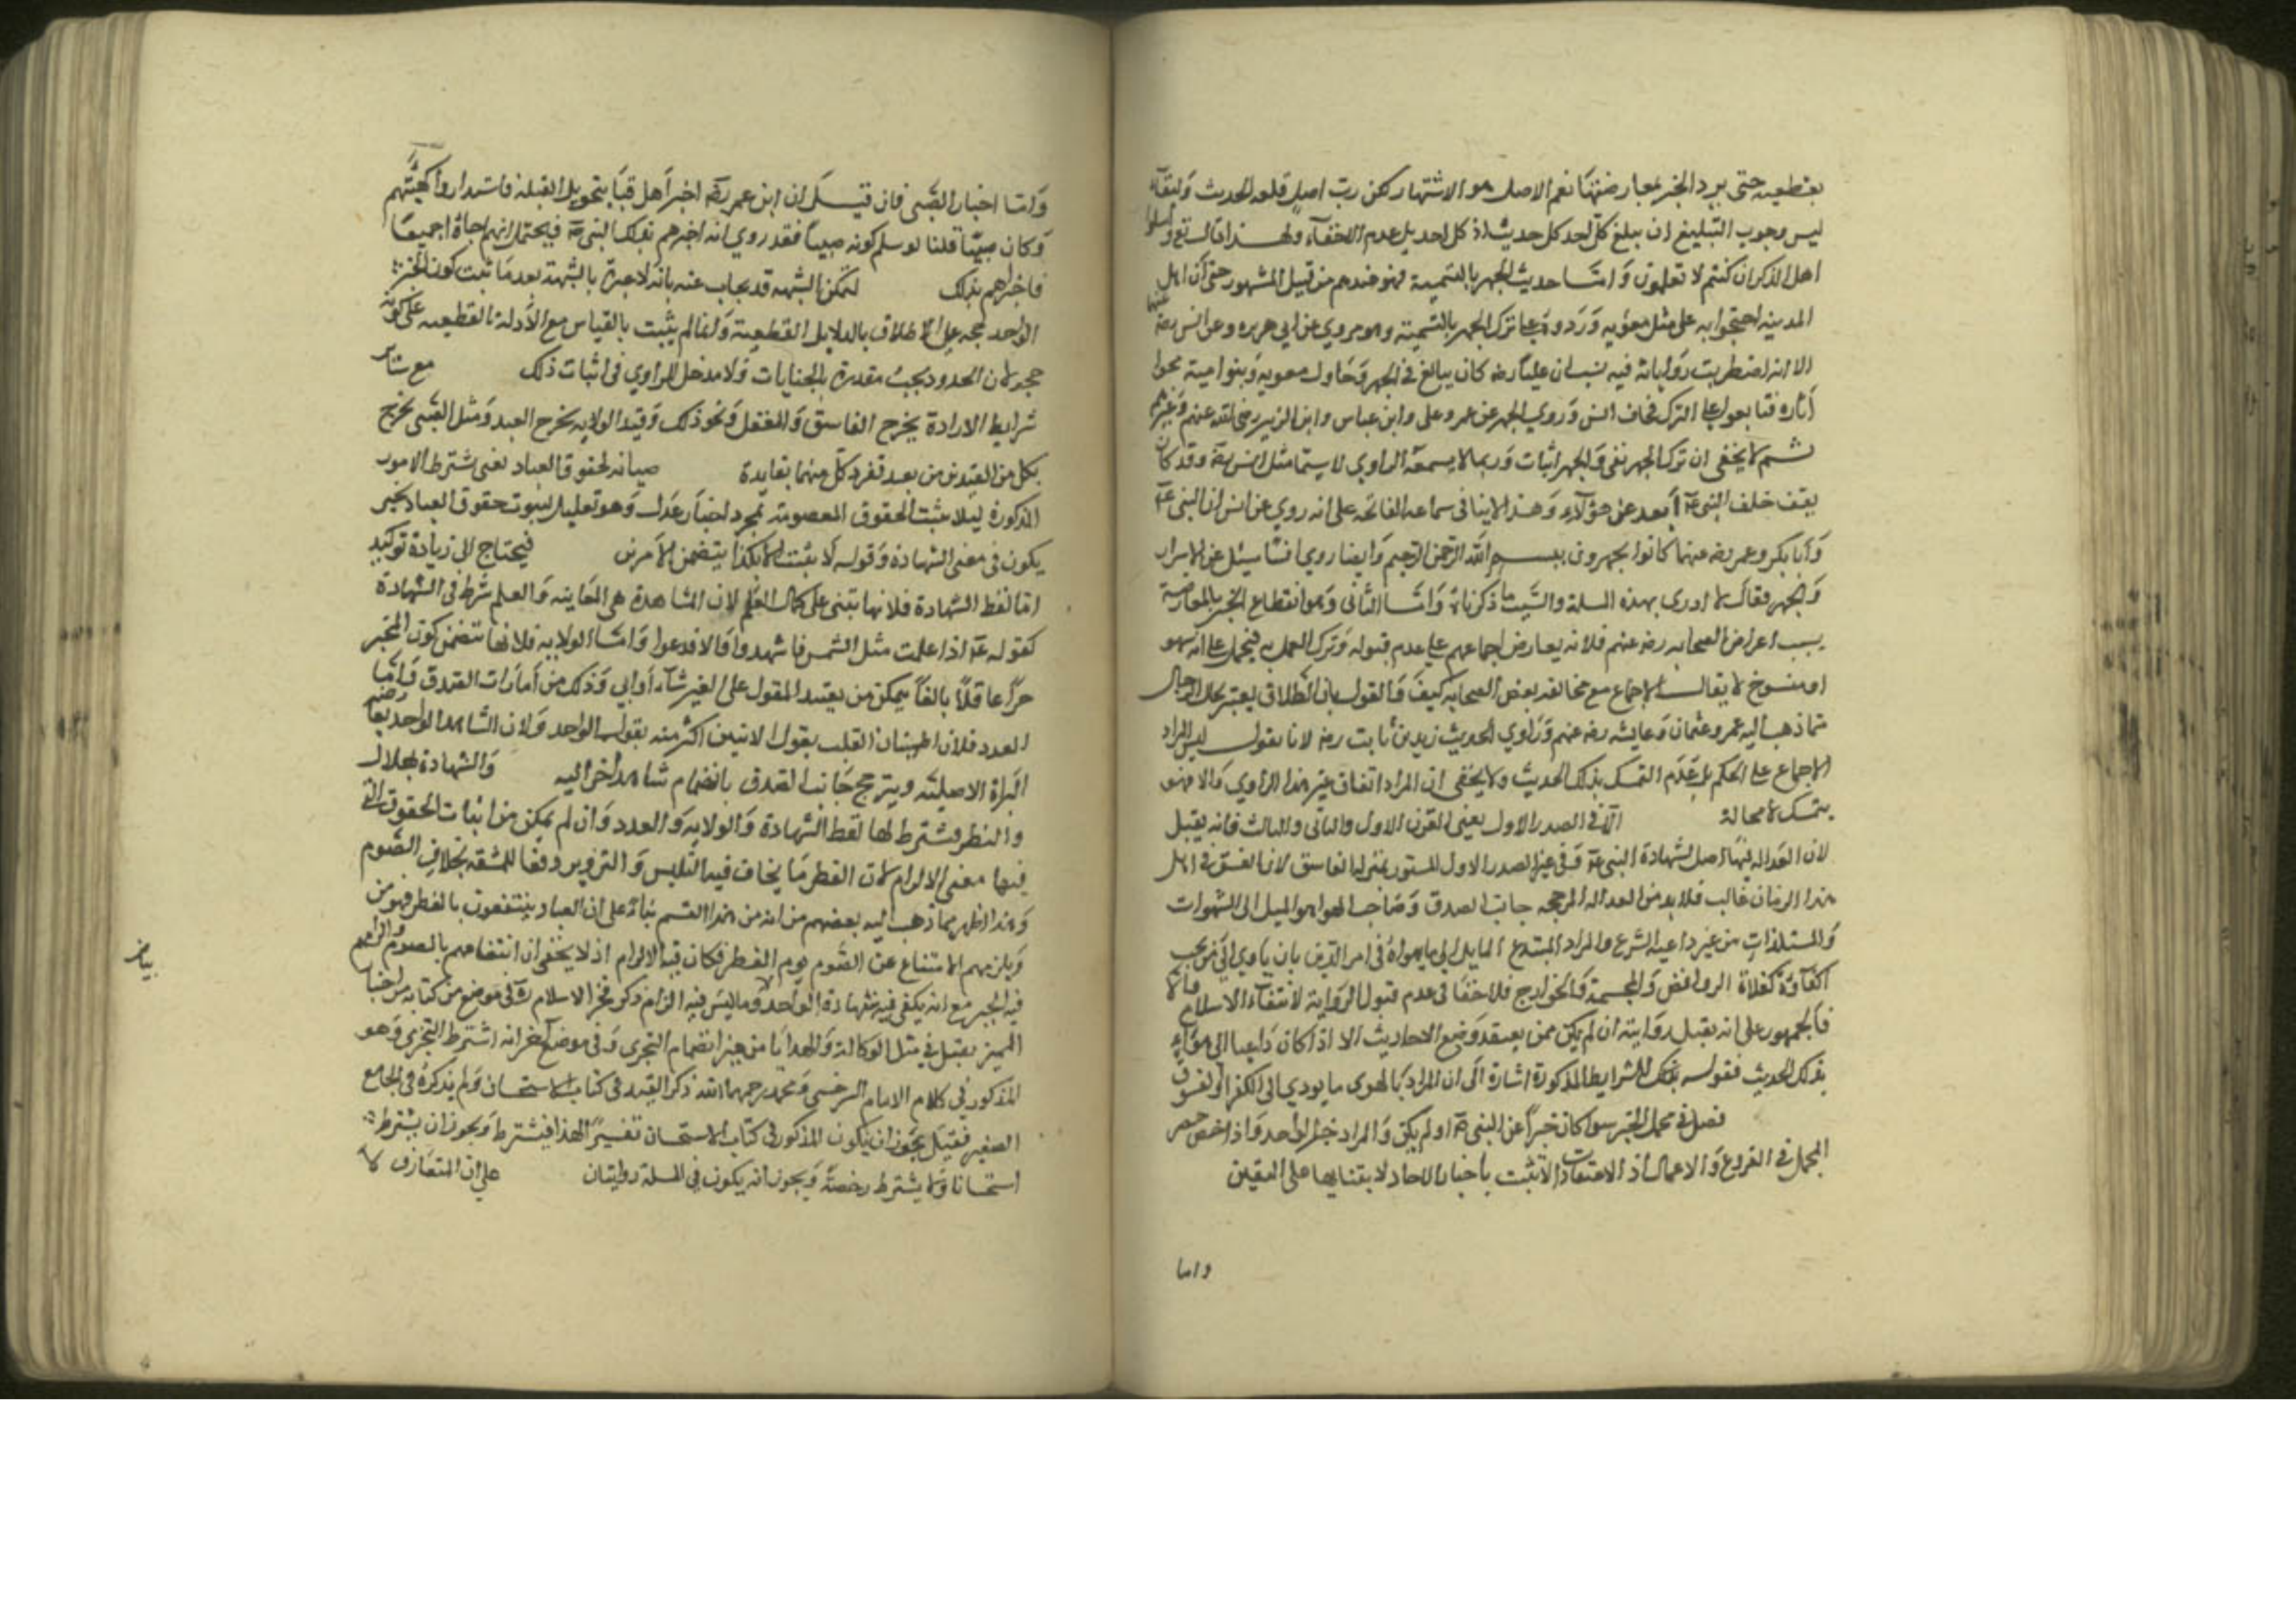 بقطعيه حتى يرد الخبر بمعارضتها نعم الاصل هو الاشتهار لكن رب اصل قلعه الحديث
ليس وجوب التبليغ ان يبلغ كل احد كل حديث اذ كل احد بل عدم الاخفاء ولهذا قال تع فاسئلوا
اهل الذكر ان كنتم لا تعلمون واما حديث الجهر بالتسمية فهو عندهم من قبيل المشهور حتى ان اهل
المدينه احتجوا به على مثل معويه وردوه على ترك الجهر بالتسمية وهو مروي عن ابي هريره وعن انس رضه عنهما
الا انه اضطربت رواياته فيه بسبب ان عليا رضه كان يبالغ في الجهر وحاول معويه وبنو امية محوا
آثاره فبالغوا على الترك فخاف انس وروي الجهر عن عمر وعلى وابن عباس وابن الزبير رضى الله عنهم وغيرهم
ثم لا يخفى ان ترك الجهر نفى والجهر اثبات وربما لا يسمعه الراوي لا سيما مثل انس رضه وقد كان
يقف خلف النبى عم أبعد عن هؤلاء وهذا لا ينافى سماعه الفاتحه على انه روي عن انس ان النبى عم
وأبا بكر وعمر رضه عنهما كانوا يجهرون ببسم الله الرحمن الرحيم وايضا روي انسا سئل عن الاسرار
والجهر فقال لا ادرى بهذه المسلة والسبب ما ذكرناه واما الثانى وهو انقطاع الخبر بالمعارضة
بسبب اعراض الصحابه رضه عنهم فلانه يعارض اجماعهم على عدم قبوله وترك العمل به فيحمل على انه سهو
او منسوخ لا يقال لا اجماع مع مخالفه بعض الصحابه كيف والقول بان الطلاق يعتبر بحال الرجال
مما ذهب اليه عمر وعثمان وعايشه رضه عنهم وراوي الحديث زيد بن ثابت رضه لانا نقول ليس المراد
الاجماع على الحكم بل عدم التمسك بذلك الحديث ولا يخفى ان المراد اتفاق غير هذا الراوي والا فهو
يتمسك لا محالة الا فى الصدر الاول يعنى القرن الاول والثانى والثالث فانه يقبل
لان العداله فيها اصل لشهادة النبى عم وفى غير الصدر الاول المستور بمنزلة الفاسق لان الفسق فى اهل
هذا الزمان غالب فلا بد من العداله المرجحه جانب الصدق وصاحب الهوا هو الميل الى الشهوات
والمستلذات من غير داعيه الشرع والمراد المبتدع المايل الى ما يهواه فى امر الدين بان يأوي الى من يجب
اكفاره كغلاة الروافض والمجسمة والخوارج فلا خفا فى عدم قبول الرواية لانتفاء الاسلام
فالجمهور على انه يقبل روايته ان لم يكن ممن يعتقد وضع الاحاديث الا اذا كان داعيا الى هواه
بذلك الحديث فقوله بتلك الشرايط المذكورة اشارة الى ان المراد بالهوى ما يودي الى الكفر او الفسق
فصل فى محل الخبر سوا كان خبرا عن النبى عم او لم يكن والمراد خبر الواحد واذا خص حصر
المحمل فى الفروع والاعمال اذ الاعتقاديات لا تثبت باخبار الاحاد لابتنايها على اليقين
واما
واما اخبار الصبى فان قيل ان ابن عمر رضه اخبر اهل قبا بتحويل القبله فاستداروا كهيئتهم
وكان صبيا قلنا لو سلم كونه صبيا فقد روي انه اخبرهم بذلك النبى عم فيحتمل انهم جاؤا جميعا
فاخبراهم بذلك لتمكن الشبهه قد يجاب عنه بانه لا عبرة بالشبهة بعد ما ثبت كون الخبر
الواحد حجه على الاطلاق بالدلايل القطعية وانما لم يثبت بالقياس مع الادلة القطعيه على كونه
حجه لان الحدود يجب مقدرة بالجنايات ولا مدخل للراوي فى اثبات ذلك مع ساير
شرايط الارادة يخرج الفاسق والمغفل ونحو ذلك وقيد الولايه يخرج العبد ومثل الصبى يخرج
بكل من القيدين من بعد تفرد كل منهما بفايدة صيانه لحقوق العباد يعنى يشترط الامور
المذكورة ليلا يثبت الحقوق المعصومة بمجرد اخبار عدل وهو تعليل لثبوت حقوق العباد بخبر
يكون فى معنى الشهاده وقوله لا يثبت الا بكذا يتضمن الامرين فيحتاج الى زيادة توكيد
اما لفظ الشهادة فلانها تنبى على كمال العلم لان المشاهدة هى المعاينه والعلم شرط فى الشهادة
كقوله عم اذا علمت مثل الشمس فاشهدوا والا فدعوا واما الولاية فلانها تتضمن كون المخبر
حرا عاقلا بالغا يمكن من تنفيذ المقول على الغير شاء أو ابي وذلك من أمارات الصدق واما
العدد فلان اطمينان القلب بقول الاثنين اكثر منه بقول الواحد ولان الشاهد الواحد يعارضه
البراة الاصلية ويترجح جانب الصدق بانضمام شاهد اخر اليه والشهادة بهلال
والفطر يشترط لها لفظ الشهادة والولايه والعدد وان لم يمكن من اثبات الحقوق التى
فيها معنى الالزام لان الفطر مما يخاف فيه التلبيس والتزوير دفعا للمشقه بخلاف الصوم
وهذا اظهر مما ذهب اليه بعضهم من انه من هذا القسم بناء على ان العباد ينتفعون بالفطر فهو من
ويلزمهم الامتناع عن الصوم يوم الفطر فكان فيه الالزام اذ لا يخفى ان انتفاعهم بالصوم
فيه الجبر مع انه يكفى فيه شهادة الواحد وما ليس فيه الزام ذكر فخر الاسلام رة فى موضع من كتابه من اخبار
المميز يقبل فى مثل الوكالة والهدايا من غير انضمام التحرى وفى موضع آخر انه اشترط التحرى وهو
المذكور فى كلام الامام السرخسى ومحمد رحمهما الله ذكر القيد فى كتاب الاستحسان ولم يذكره فى الجامع
الصغير فقيل يجوز ان يكون المذكور فى كتاب الاستحسان تفسيرا لهذا فيشترط ويجوز ان يشترط
استحسانا ولا يشترط رخصة ويجوز انه يكون فى المسلة روايتان على ان المتعارف لا
بياض